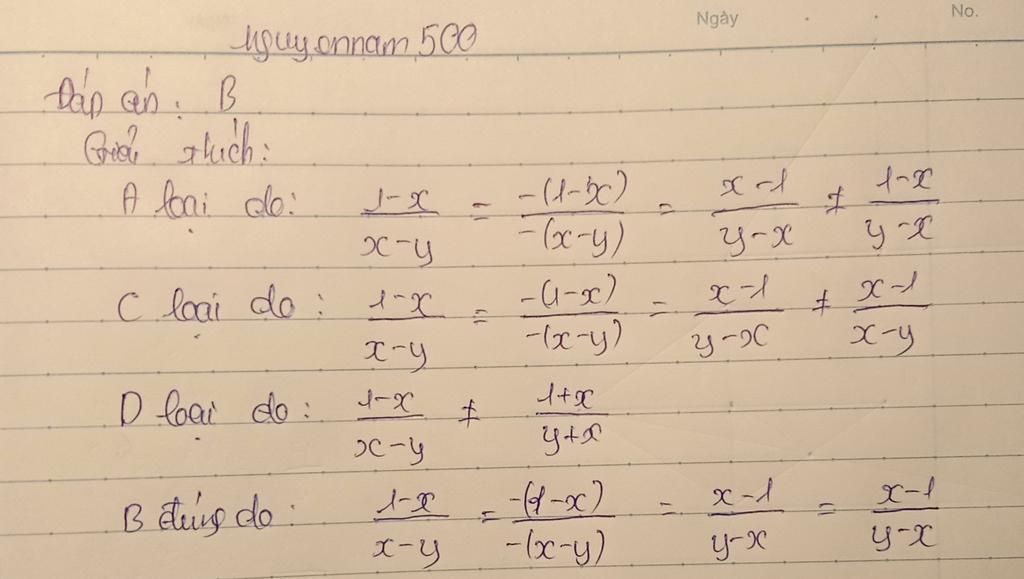 Ngày . . No.
nguyonnam500
Đáp án: B
Giải thích:
A loại do: (1-x)/(x-y) = (-(1-x))/(-(x-y)) = (x-1)/(y-x) ≠ (1-x)/(y-x)
C loại do: (1-x)/(x-y) = (-(1-x))/(-(x-y)) = (x-1)/(y-x) ≠ (x-1)/(x-y)
D loại do: (1-x)/(x-y) ≠ (1+x)/(y+x)
B đúng do: (1-x)/(x-y) = (-(1-x))/(-(x-y)) = (x-1)/(y-x) = (x-1)/(y-x)